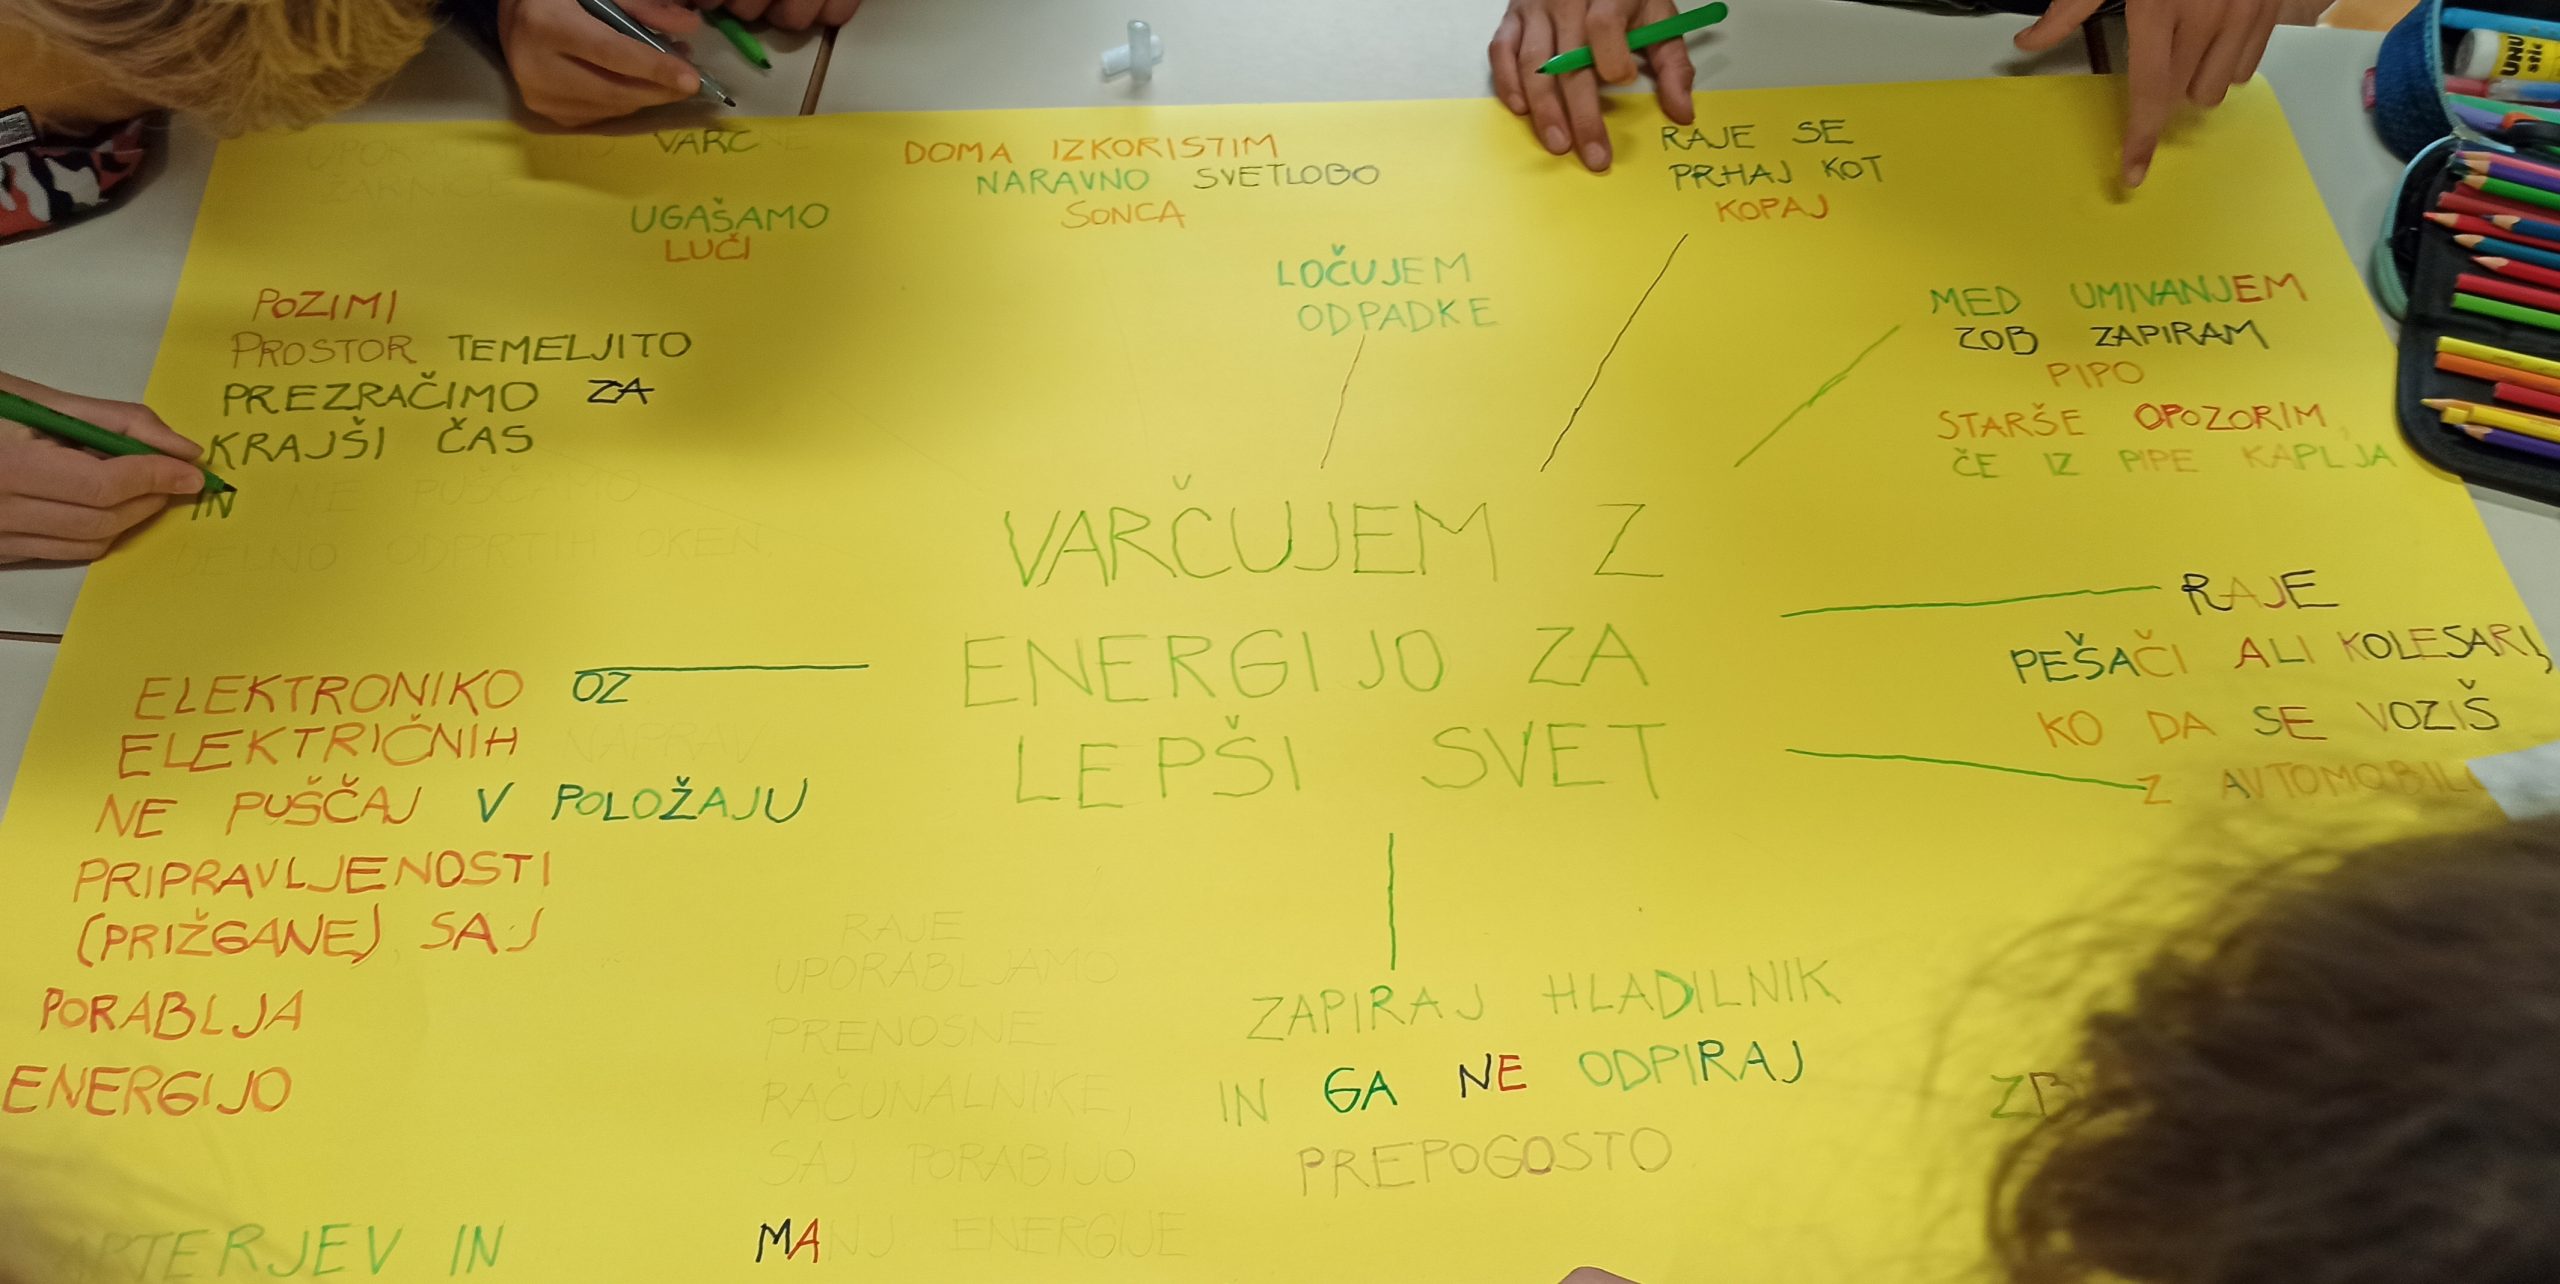 VARČNE
DOMA IZKORISTIM
NARAVNO SVETLOBO
SONCA
RAJE SE
PRHAJ KOT
KOPAJ
UGAŠAMO
LUČI
LOČUJEM
ODPADKE
POZIMI
PROSTOR TEMELJITO
PREZRAČIMO ZA
KRAJŠI ČAS
IN NE PUŠČAMO
DELNO ODPRTIH OKEN.
MED UMIVANJEM
ZOB ZAPIRAM
PIPO
STARŠE OPOZORIM,
ČE IZ PIPE KAPLJA
VARČUJEM Z
ENERGIJO ZA
LEPŠI SVET
RAJE
PEŠAČI ALI KOLESARI,
KO DA SE VOZIŠ
Z
ELEKTRONIKO OZ
ELEKTRIČNIH NAPRAV
NE PUŠČAJ V POLOŽAJU
PRIPRAVLJENOSTI
(PRIŽGANE) SAJ
PORABLJA
ENERGIJO
RAJE
UPORABLJAMO
PRENOSNE
RAČUNALNIKE,
SAJ PORABIJO
MANJ ENERGIJE
ZAPIRAJ HLADILNIK
IN GA NE ODPIRAJ
PREPOGOSTO
IN
UHU
stic